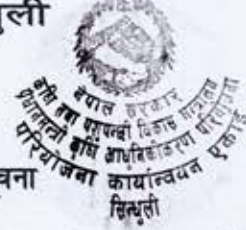 ुली
नेपाल सरकार
कृषि तथा पशुपन्छी विकास मन्त्रालय
प्रधानमन्त्री कृषि आधुनिकीकरण परियोजना
परियोजना कार्यान्वयन एकाई
सिन्धुली
चना